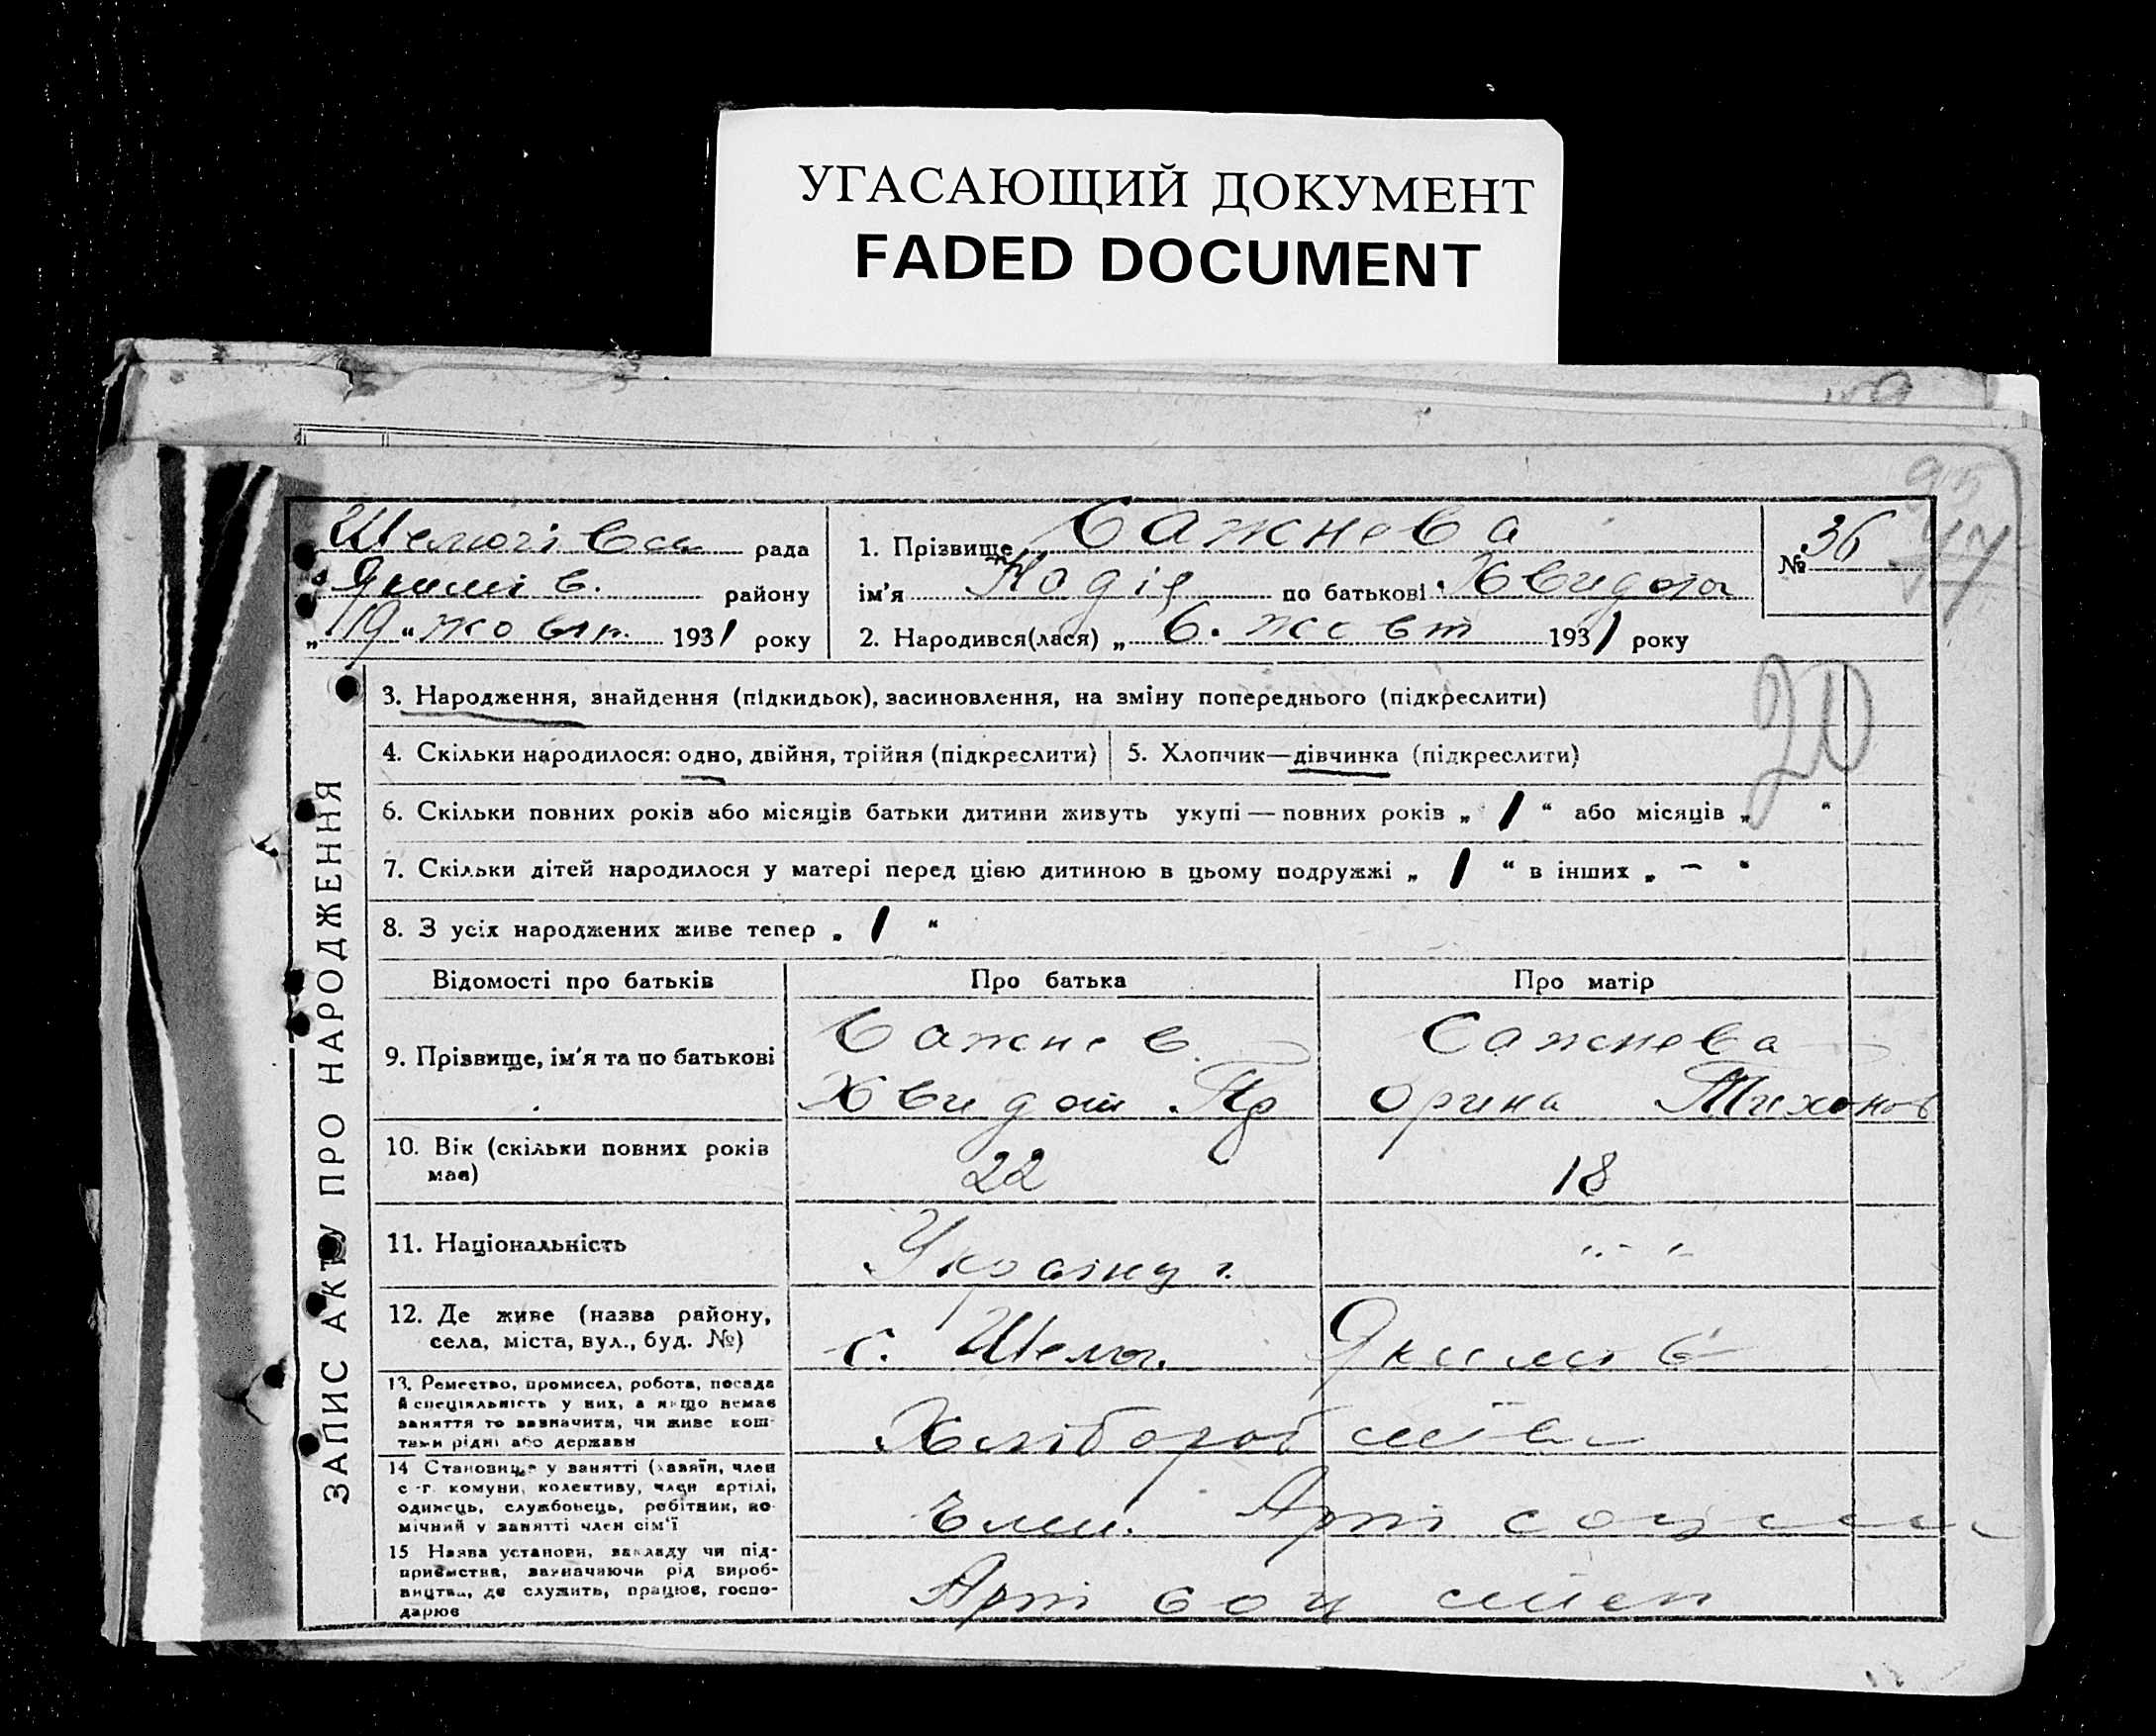 УГАСАЮЩИЙ ДОКУМЕНТ
FADED DOCUMENT
рада
району
„19“ жовтн. 1931 року
1. Прізвище Сажнева
ім'я Надія по батькові Хвидот
2. Народився(лася) „6. жовт 1931 року
№ 36
20
ЗАПИС АКТУ ПРО НАРОДЖЕННЯ
3. Народження, знайдення (підкидьок), засиновлення, на зміну попереднього (підкреслити)
4. Скільки народилося: одно, двійня, трійня (підкреслити)
5. Хлопчик—дівчинка (підкреслити)
6. Скільки повних років або місяців батьки дитини живуть укупі — повних років „ 1 “ або місяців „ “
7. Скільки дітей народилося у матері перед цією дитиною в цьому подружжі „ 1 “ в інших „ – “
8. З усіх народжених живе тепер „ 1 “
Відомості про батьків
Про батька
Про матір
9. Прізвище, ім'я та по батькові
Сажнев
Хвидот Пр
Сажнева
Орина Тихонов
10. Вік (скільки повних років
має)
22
18
11. Національність
12. Де живе (назва району,
села, міста, вул., буд. №)
с. Шелюг. Якимів
13. Ремество, промисел, робота, посада
й спеціяльність у них, а якщо немає
заняття то зазначити, чи живе кош-
тами рідні або держави
Хлібороб
14 Становище у занятті (хазяїн, член
с-г. комуни, колективу, член артілі,
одинець, службовець, робітник, по-
мічний у занятті член сім'ї
Член. Арті
15 Назва установи, закладу чи під-
приємства, зазначаючи рід вироб-
ництва, де служить, працює, госпо-
дарює
Арті соц